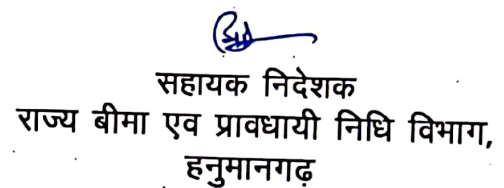 सहायक निदेशक
राज्य बीमा एव प्रावधायी निधि विभाग,
हनुमानगढ़